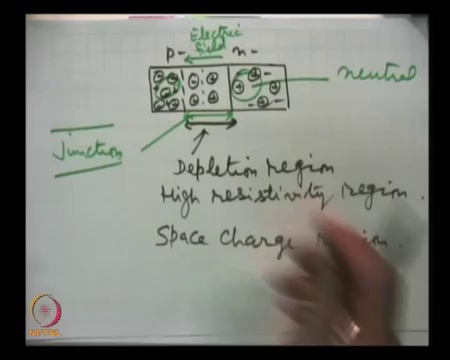 Electric
field
p- n-
neutral
Junction
Depletion region
High resistivity region.
Space Charge region.
NPTEL